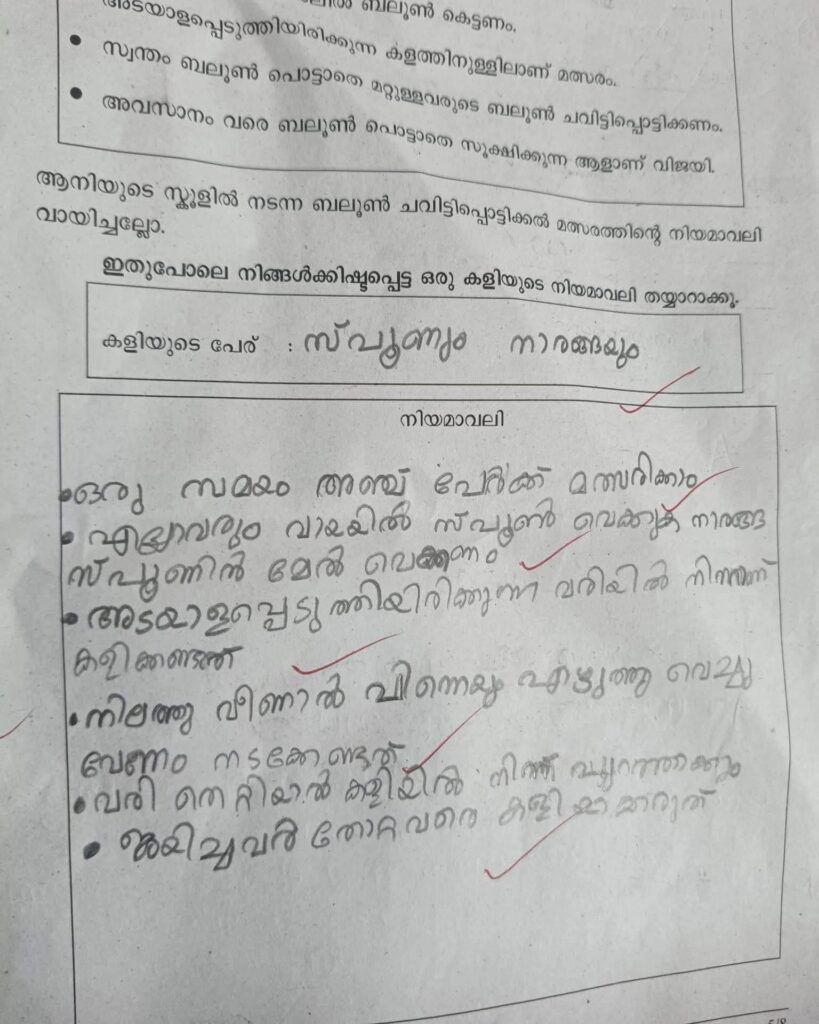 ബലൂൺ കെട്ടണം.
അടയാളപ്പെടുത്തിയിരിക്കുന്ന കളത്തിനുള്ളിലാണ് മത്സരം.
• സ്വന്തം ബലൂൺ പൊട്ടാതെ മറ്റുള്ളവരുടെ ബലൂൺ ചവിട്ടിപ്പൊട്ടിക്കണം.
• അവസാനം വരെ ബലൂൺ പൊട്ടാതെ സൂക്ഷിക്കുന്ന ആളാണ് വിജയി.
ആനിയുടെ സ്കൂളിൽ നടന്ന ബലൂൺ ചവിട്ടിപ്പൊട്ടിക്കൽ മത്സരത്തിന്റെ നിയമാവലി
വായിച്ചല്ലോ.
ഇതുപോലെ നിങ്ങൾക്കിഷ്ടപ്പെട്ട ഒരു കളിയുടെ നിയമാവലി തയ്യാറാക്കൂ.
കളിയുടെ പേര് : സ്പൂണും നാരങ്ങയും
നിയമാവലി
• ഒരു സമയം അഞ്ച് പേർക്ക് മത്സരിക്കാം
• എല്ലാവരും വായയിൽ സ്പൂൺ വെക്കുക നാരങ്ങ
സ്പൂണിൻ മേൽ വെക്കണം
• അടയാളപ്പെടുത്തിയിരിക്കുന്ന വരിയിൽ നിന്നാണ്
കളിക്കണ്ടത്
• നിലത്തു വീണാൽ പിന്നെയും എഴുത്തു വെച്ചു
വേണം നടക്കേണ്ടത്
• വരി തെറ്റിയാൽ കളിയിൽ നിന്ന് പുറത്താക്കും
• ജയിച്ചവർ തോറ്റവരെ കളിയാക്കരുത്